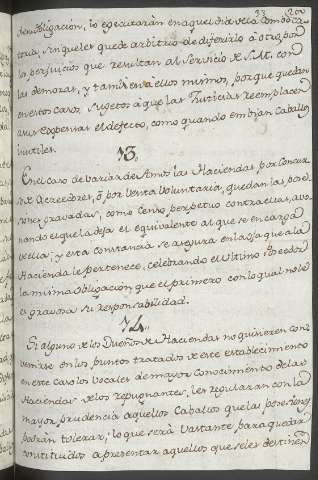 de su obligación, lo egecutarán en aquel dia de la combocatoria, sin que les quede arbitrio de diferirlo á otro por
los perjuicios que resultan al Servicio de S.M. con
las demoras, y tambien á ellos mismos, porque quedan
en estos casos, sugetos á que las Justicias reemplacen
á sus expensas el defecto, como quando embian Caballos
inutiles.
13.
En el caso de variar de Amos las Haciendas por Concurso
de Acreedores, ó por Venta Voluntaria, quedan las pose-
siones gravadas, como Censo perpetuo contra ellas, avo-
nando el que la deja el equivalente al que se encarga
de ella; y esta constancia se asegura en la Caja que á la
Hacienda le pertenece, celebrando el Ultimo Poseedor
la misma obligacion que el primero con lo qual no le
es gravosa su responsabilidad.
14.
Si alguno de los Dueños de Haciendas no quisieren con-
venirse en los puntos tratados de este establecimiento
en este caso los Vocales de mayor Conocimiento de las
Haciendas de los repugnantes, les regularan con la
mayor prudencia aquellos Caballos que las posesiones
podrán tolerar; lo que será Vastante para quedar
constituidos á presentar aquellos que se les destinen